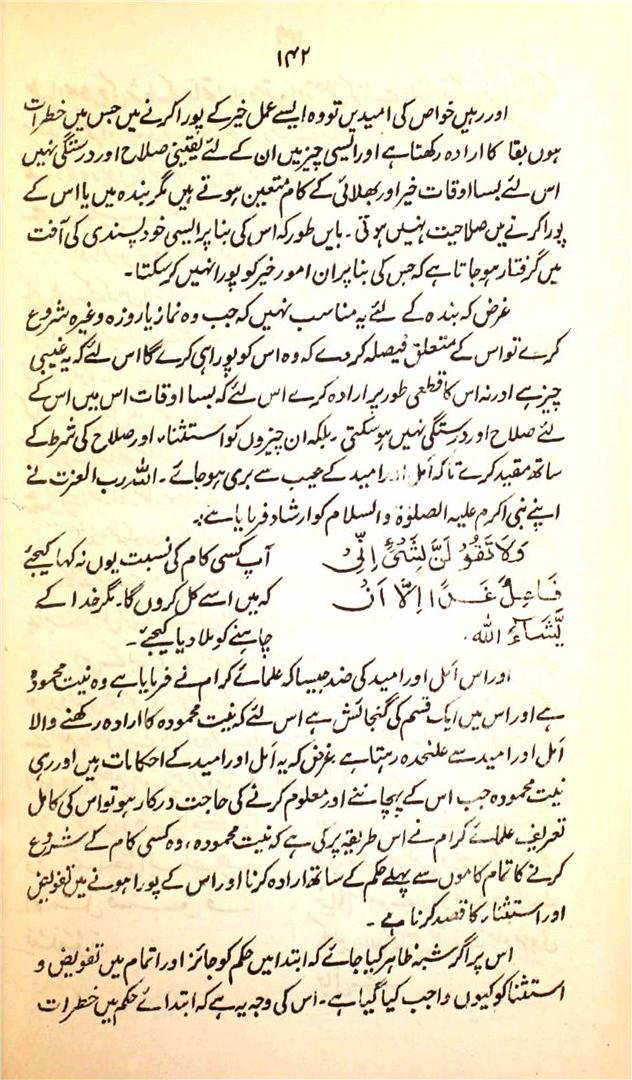 ۱۴۲
اور رہیں خواص کی امیدیں تو وہ ایسے عمل خیر کے پورا کرنے میں جس میں خطرات
ہوں بقا کا ارادہ رکھتا ہے اور ایسی چیز میں ان کے لئے یقینی صلاح اور درستگی نہیں
اس لئے بسا اوقات خیر اور بھلائی کے کام متعین ہوتے ہیں مگر بندہ میں یا اس کے
پورا کرنے میں صلاحیت نہیں ہوتی۔ بایں طور کہ اس کی بنا پر ایسی خود پسندی کی آفت
میں گرفتار ہو جاتا ہے کہ جس کی بنا پر ان امور خیر کو پورا نہیں کر سکتا۔
غرض کہ بندہ کے لئے یہ مناسب نہیں کہ جب وہ نماز یا روزہ وغیرہ شروع
کرے تو اس کے متعلق فیصلہ کر دے کہ وہ اس کو پورا ہی کرے گا اس لئے کہ یہ غیبی
چیز ہے اور نہ اس کا قطعی طور پر ارادہ کرے اس لئے کہ بسا اوقات اس میں اس کے
لئے صلاح اور درستگی نہیں ہو سکتی۔ بلکہ ان چیزوں کو استثناء اور صلاح کی شرط کے
ساتھ مقید کرے تاکہ اَمل اور امید کے عیب سے بری ہو جائے۔ اللہ رب العزت نے
اپنے نبی اکرم علیہ الصلوٰۃ والسلام کو ارشاد فرمایا ہے:۔
وَلَا تَقُوْلَنَّ لِشَیْءٍ اِنِّیْ
فَاعِلٌ غَدًا اِلَّا اَنْ
یَّشَآءَ اللہ۔
آپ کسی کام کی نسبت یوں نہ کہا کیجئے
کہ میں اسے کل کروں گا۔ مگر خدا کے
چاہنے کو ملا دیا کیجئے۔
اور اس اَمل اور امید کی ضد جیسا کہ علمائے کرام نے فرمایا ہے وہ نیت محمودہ
ہے اور اس میں ایک قسم کی گنجائش ہے اس لئے کہ نیت محمودہ کا ارادہ رکھنے والا
اَمل اور امید سے علٰحدہ رہتا ہے۔ غرض کہ یہ اَمل اور امید کے احکامات ہیں اور رہی
نیت محمودہ جب اس کے پہچاننے اور معلوم کرنے کی حاجت درکار ہو تو اس کی کامل
تعریف علمائے کرام نے اس طریقہ پر کی ہے کہ نیت محمودہ، وہ کسی کام کے شروع
کرنے کا تمام کاموں سے پہلے حکم کے ساتھ ارادہ کرنا اور اس کے پورا ہونے میں تفویض
اور استثنار کا قصد کرنا ہے۔
اس پر اگر شبہ ظاہر کیا جائے کہ ابتدا میں حکم کو جائز اور اتمام میں تفویض و
استثنا کو کیوں واجب کیا گیا ہے۔ اس کی وجہ یہ ہے کہ ابتدائے حکم میں خطرات